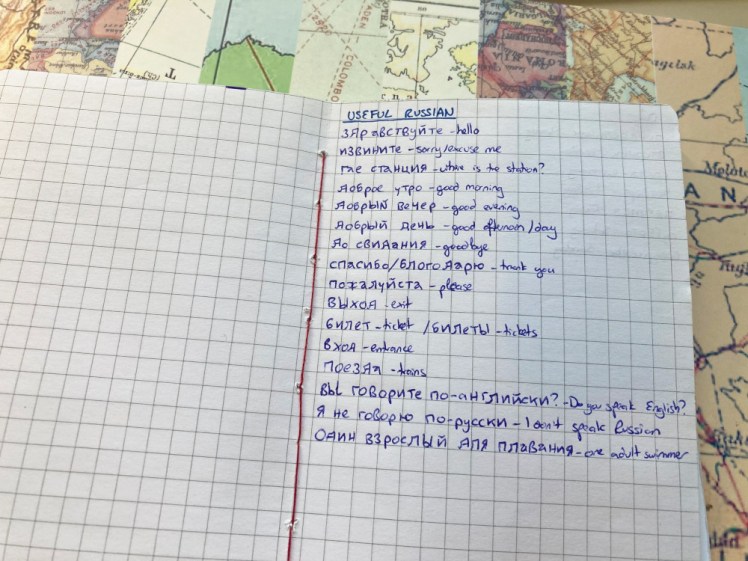 COLOMBO
USEFUL RUSSIAN
здравствуйте - hello
извините - sorry/excuse me
где станция - where is the station?
доброе утро - good morning
добрый вечер - good evening
добрый день - good afternoon/day
до свидания - goodbye
спасибо/блогодарю - thank you
пожалуйста - please
выход - exit
билет - ticket / билеты - tickets
вход - entrance
поезд - trains
вы говорите по-английски? - Do you speak English?
я не говорю по-русски - I don't speak Russian
один взрослый для плавания - one adult swimmer